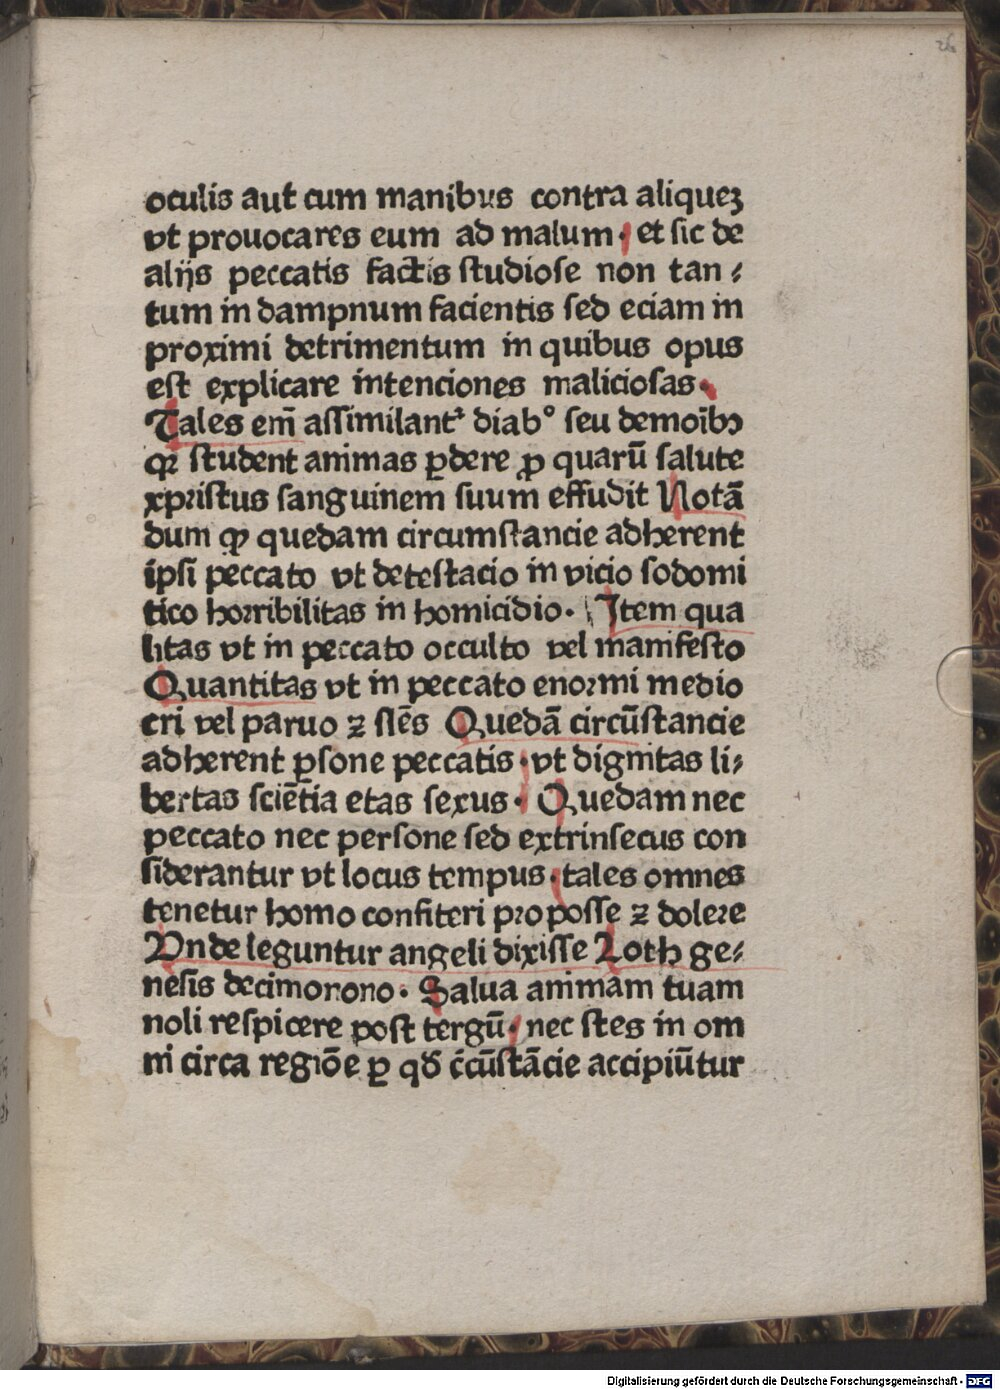 26
oculis aut cum manibus contra aliquez
vt prouocares eum ad malum· et sic de
alijs peccatis factis studiose non tan⸗
tum in dampnum facientis sed eciam in
proximi detrimentum in quibus opus
est explicare intenciones maliciosas·
Tales em̄ assimilantᷣ diab° seu demoībꝫ
qꝛ student animas ꝑdere ꝓ quarū salute
xpristus sanguinem suum effudit Notā
dum ꝙ quedam circumstancie adherent
ipsi peccato vt detestacio in vicio sodomi
tico horribilitas in homicidio· Item qua
litas vt in peccato occulto vel manifesto
Quantitas vt in peccato enormi medio
cri vel paruo ⁊ sl̄es Quedā circūstancie
adherent ꝑsone peccatis · vt dignitas li⸗
bertas sciētia etas sexus· Quedam nec
peccato nec persone sed extrinsecus con
siderantur vt locus tempus· tales omnes
tenetur homo confiteri pro posse ⁊ dolere
Vnde leguntur angeli dixisse Loth ge⸗
nesis decimonono· Salua animam tuam
noli respicere post tergū· nec stes in om
ni circa regiōe ꝑ qđ c̄cūstācie accipiūtur
Digitalisierung gefördert durch die Deutsche Forschungsgemeinschaft · DFG